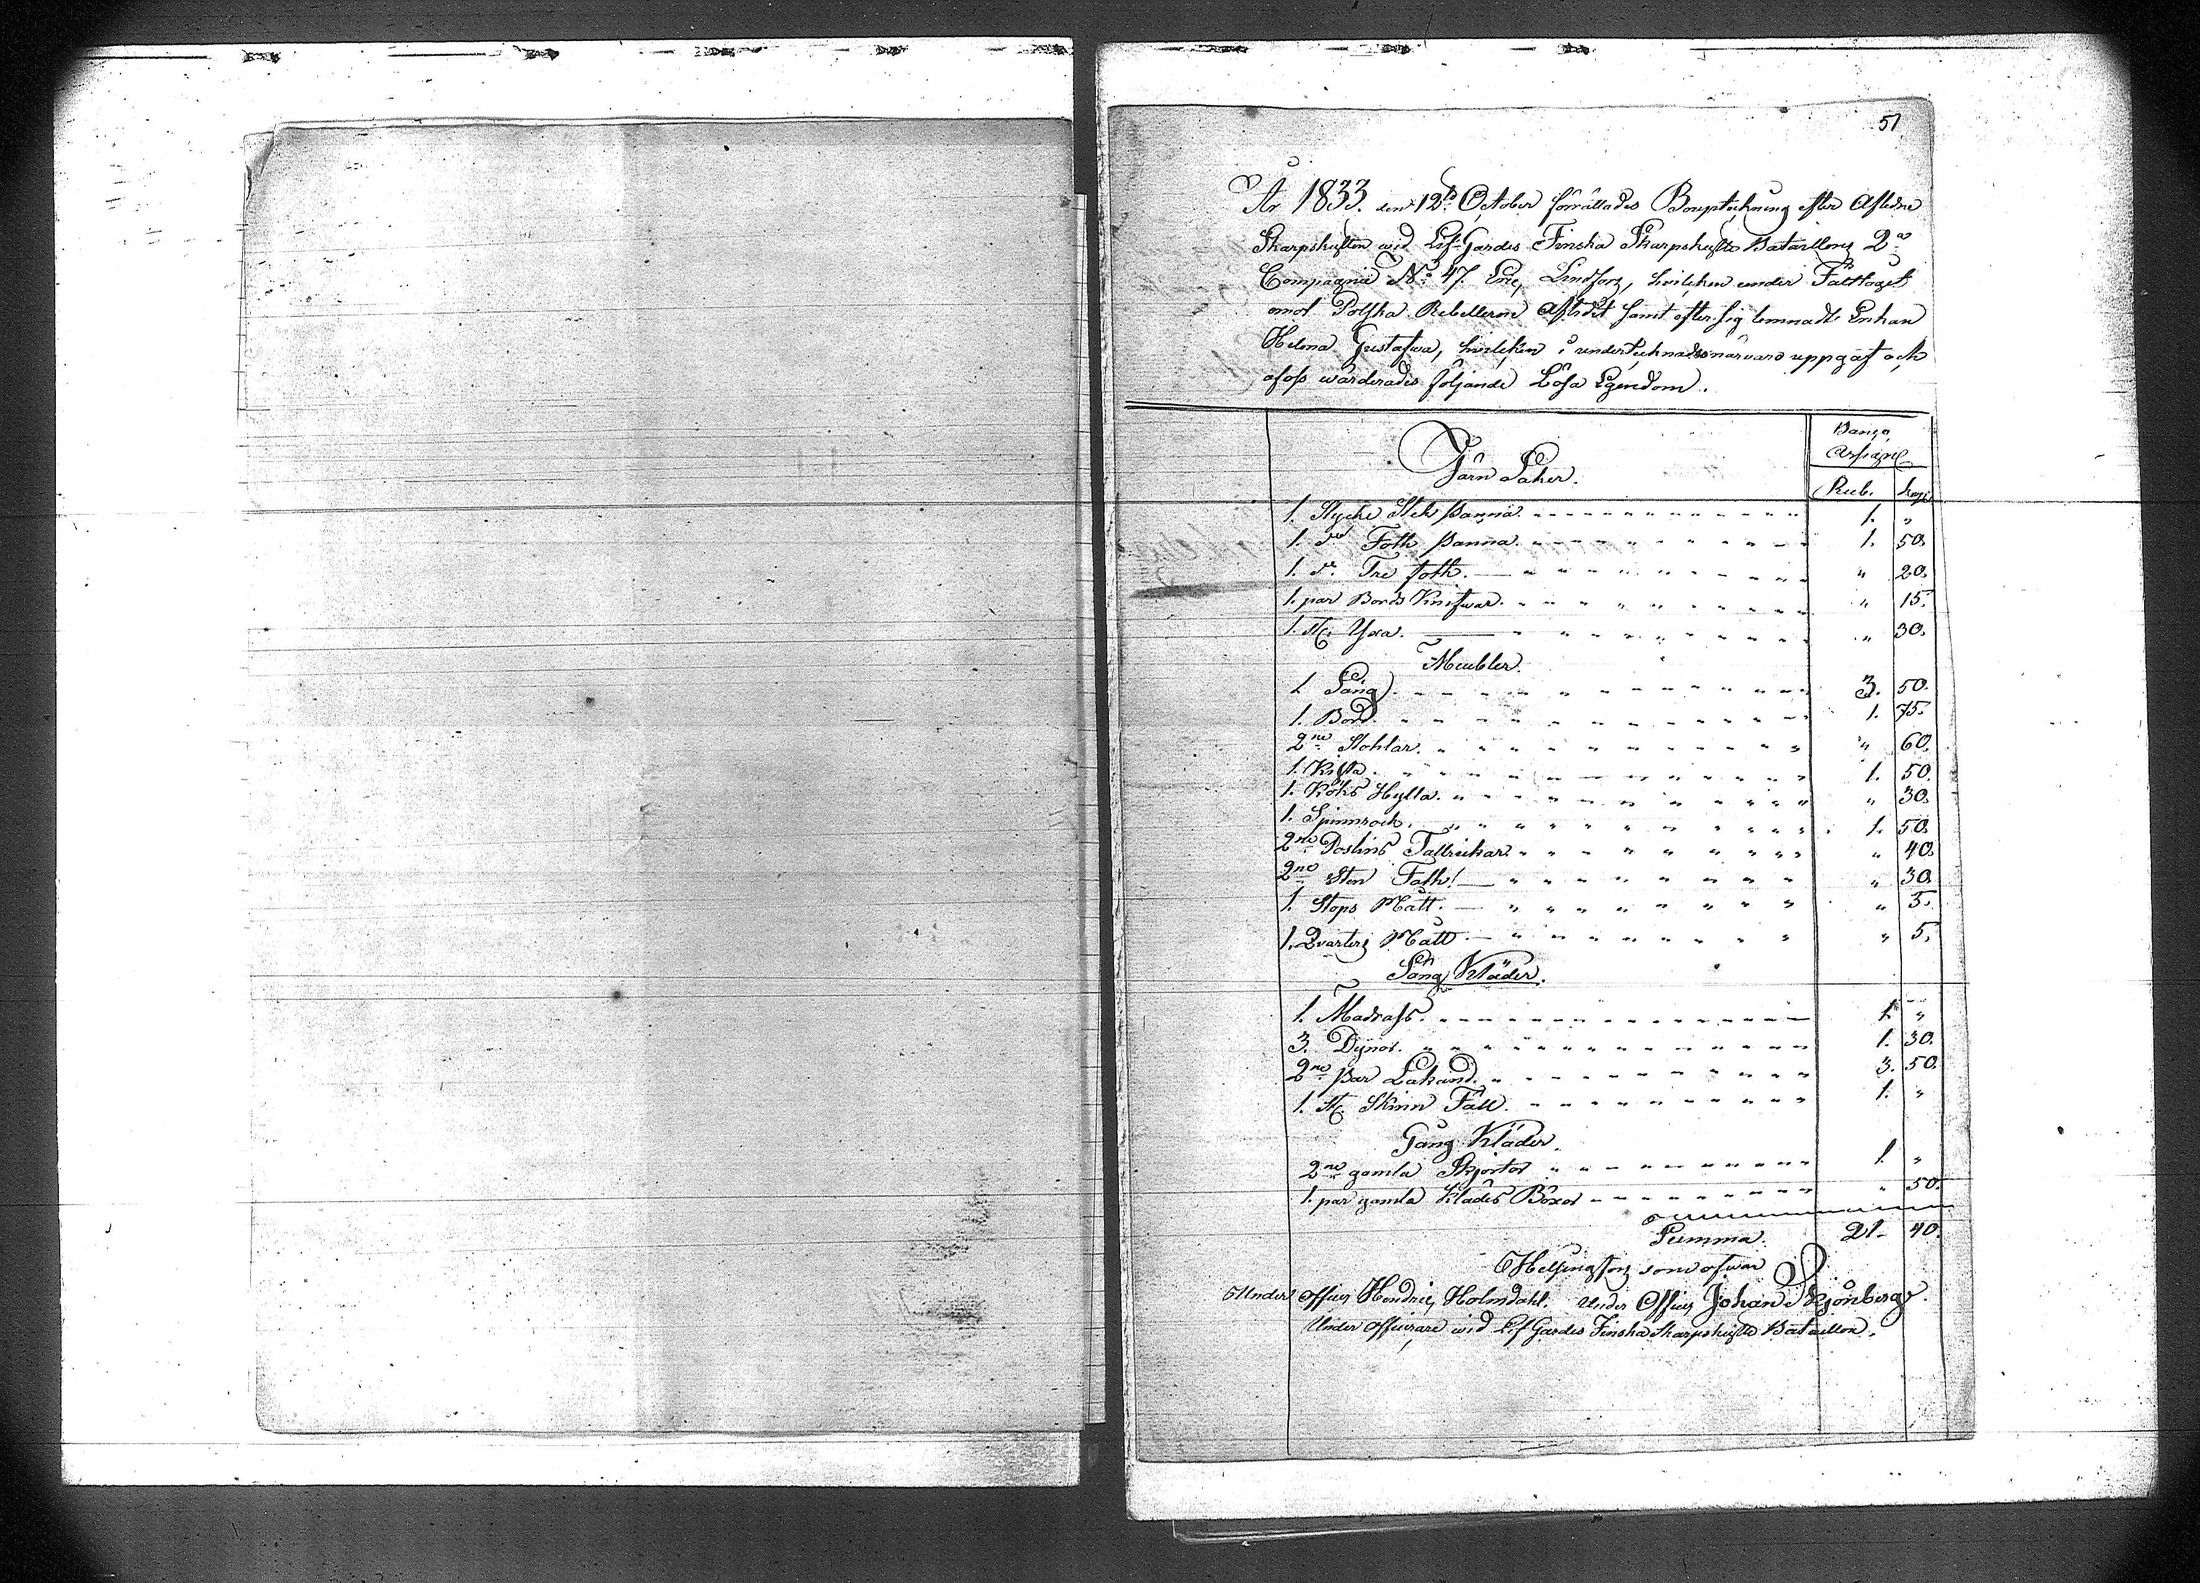 51
År 1833. den 12te October förrättades Bouptekning efter Aflidne
Skarpskytten wid Lif-Gardes Finska Skarpskytte Bataillons 2a
Compagnie No 47. Eric Lindfors, hvilken under Fälttoget
emot Polska Rebellerne Aflidit samt efter sig lemnadt Enkan
Helena Gustafwa, hvilken i undertecknades närvaro uppgaf och
af oss wärderades följande Lösa Egendom.
Banco
Assigne
Järn Saker.
Rub. kop.
1. Stycke Stek Panna. 1. "
1. do Foth Panna. 1. 50.
1. do Tre foth. " 20.
1. par Bords Knifwar. " 15.
1. st. Yxa. " 30.
Meubler.
1 Säng. 3. 50.
1. Bord. 1. 75.
2ne Stohlar. " 60.
1. Kista. 1. 50.
1. Köks Hylla. " 30.
1. Spinnrock. 1. 50.
2ne Poslins Tallrickar. " 40.
2ne Sten Fath! " 30.
1. Stops Mått. " 5.
1. Qvarters Mått. " 5.
Säng Kläder.
1. Madrass. 1. "
3. Dynor. 1. 30.
2ne par Lakand. 3. 50.
1. st. Skinn Fäll. 1. "
Gång Kläder.
2ne gamla Skjortor 1. "
1. par gamla Klädes Böxor " 50.
Summa. 21. 40.
Helsingfors som ofwan
Under Officer Hendric Holmdahl. Under Officer Johan Sjönberg.
Under Officerare wid Lif Gardes Finska Skarpskytte Bataillon.